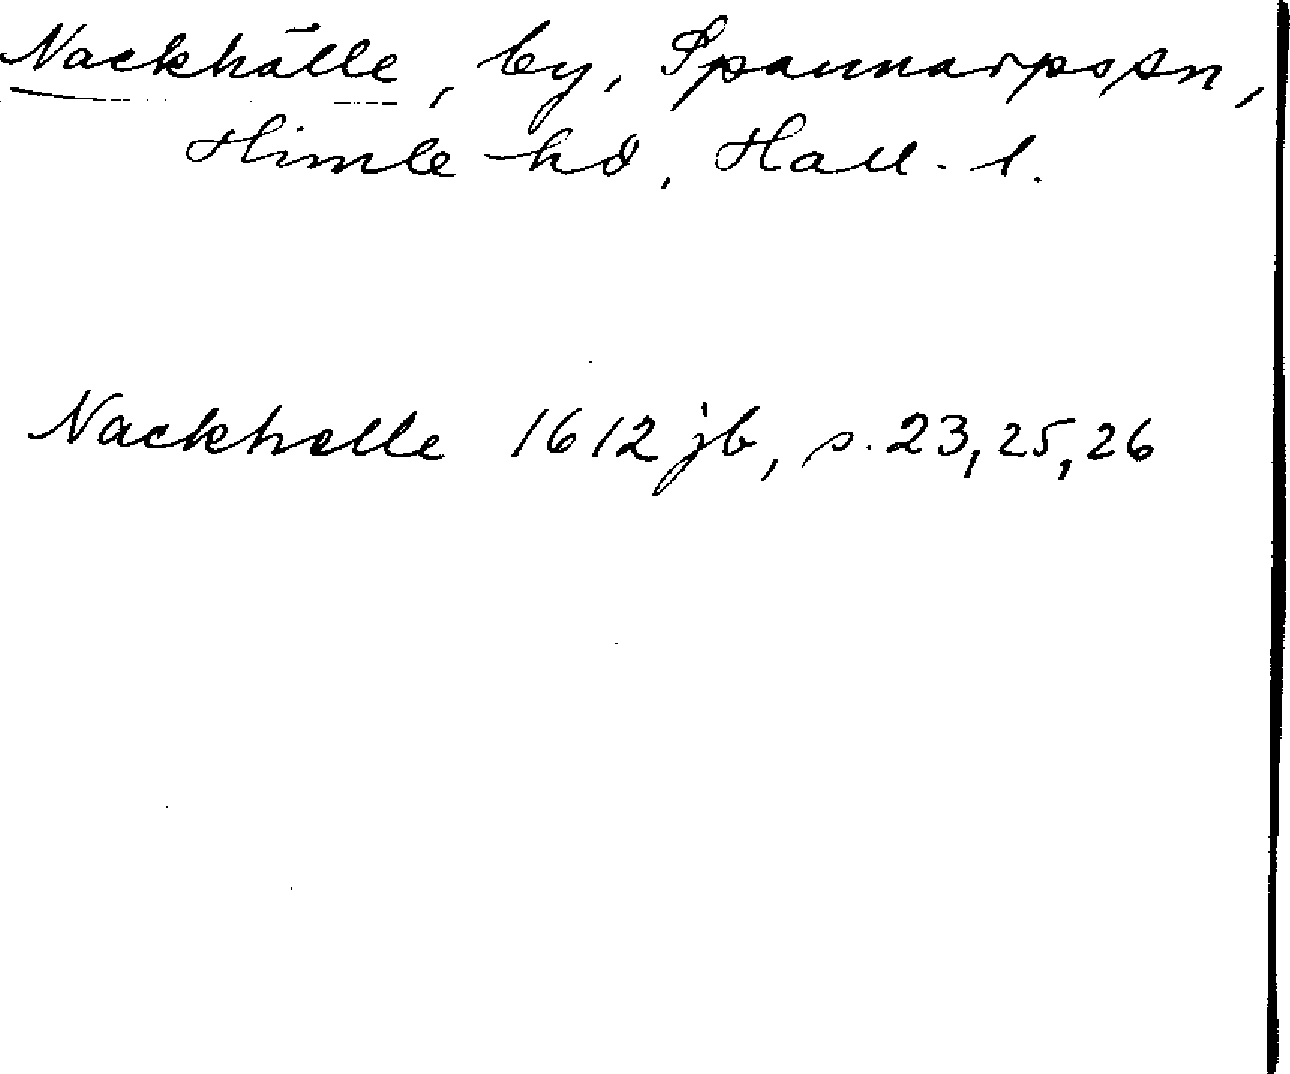 Nackhälle, by, Spannarps sn,
Himle hd, Hall. l.
Nackhelle 1612 jb, s. 23, 25, 26